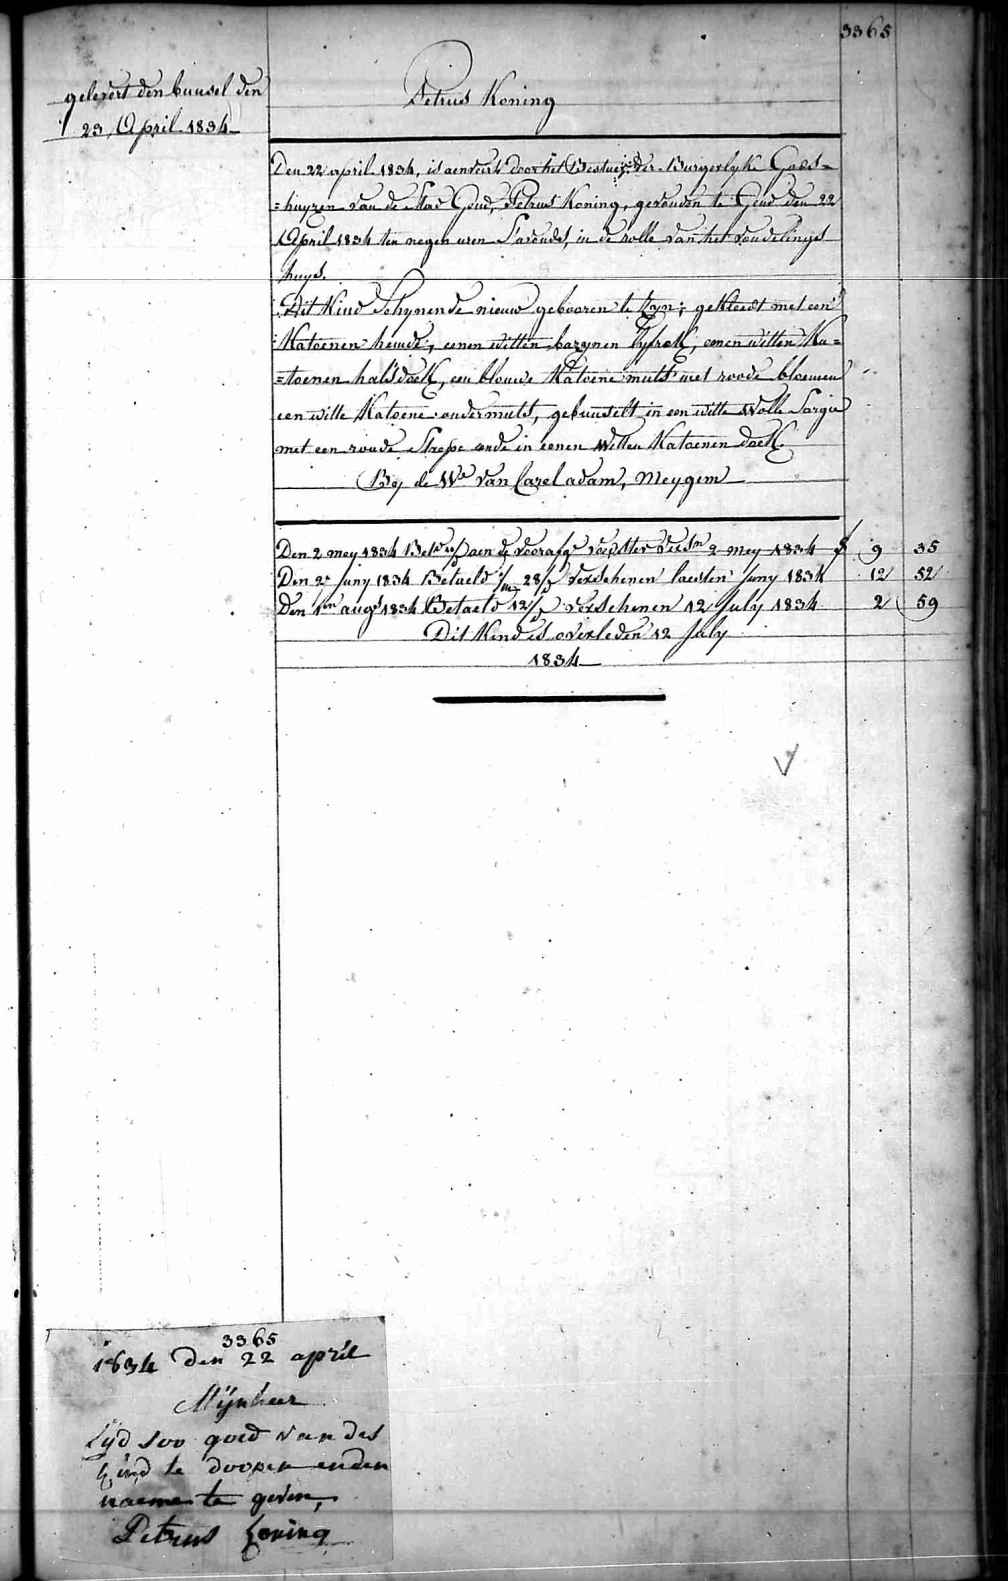 3365
gelevert den bunsel den
23, April 1834
Petrus Koning
Den 22 april 1834, is aenveirt door het Bestuer der Burgerlyke Gods=
=huyzen van de Stad Gend, Petrus Koning, gevonden te Gend den 22
April 1834 ten negen uren S'avonds, in de rolle van het vondelings
huys.
Dit Kind Schynende nieuw gebooren te Zyn; gekleedt met een
Katoenen hemde, eenen witten bazynen lyfrok, eenen witten Ka=
=toenen halsdoek, een blouwe Katoene muts met roode bloemen
een witte Katoene ondermuts, gebunselt in een witte Wolle Sargie
met een roode Strepe ende in eenen Witten Katoenen doek.
By de We van Carel adam, Meygem
Den 2 mey 1834 aen de voorafge voedster 2 mey 1834 9 35
Den 2n Juny 1834 Betaeld 28/ verschenen laesten Juny 1834 12 52
Den 1en augs 1834 Betaeld 12/ verschenen 12 July 1834 2 59
Dit Kind is overleden 12 July
1834
3365
1834 den 22 april
Mijnheer
Zijd soo goed van des
kind te doopen enden
naeme te geven,
Petrus koning